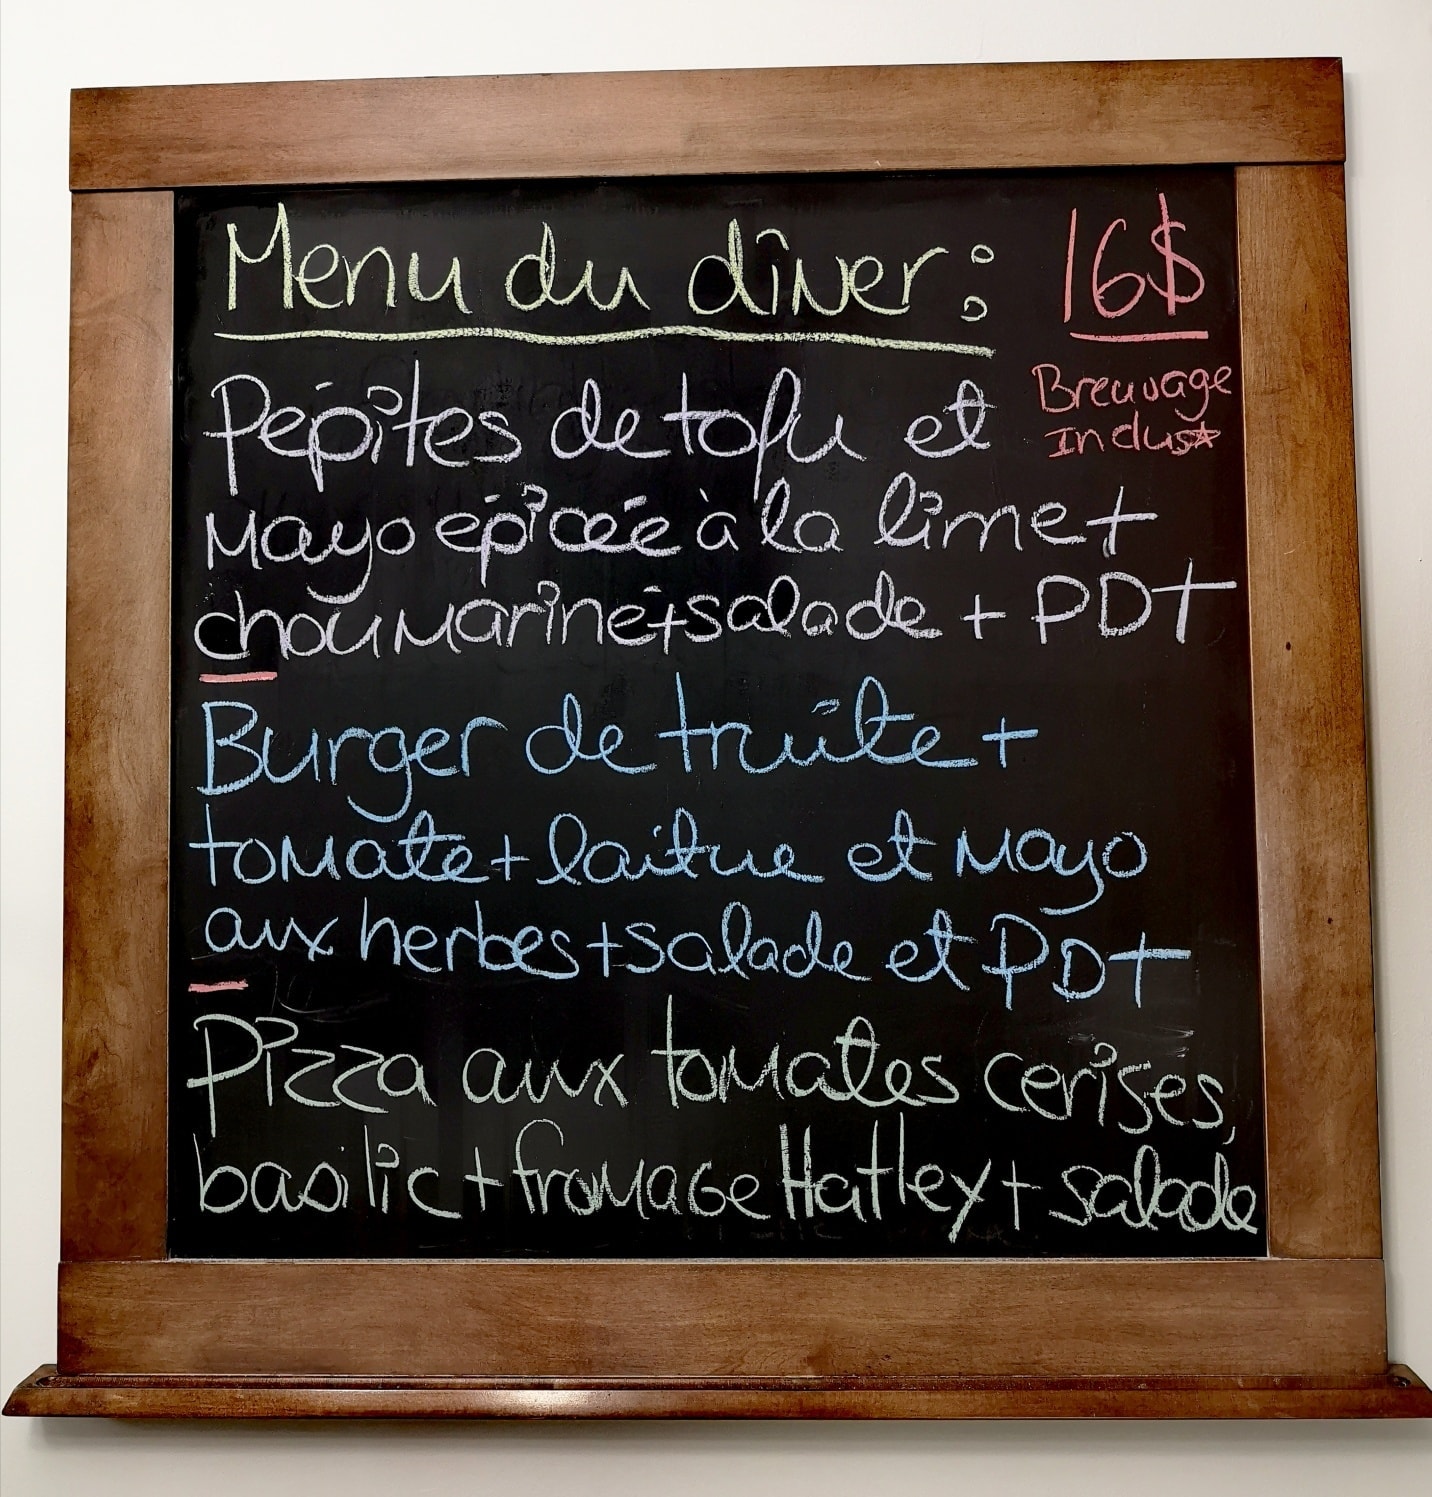 Menu du dîner : 16$
Breuvage
Inclus
Pépites de tofu et
Mayo épicée à la lime +
chou mariné + salade + PDT
Burger de truite +
tomate + laitue et Mayo
aux herbes + salade et PDT
Pizza aux tomates cerises,
basilic + fromage Hatley + salade